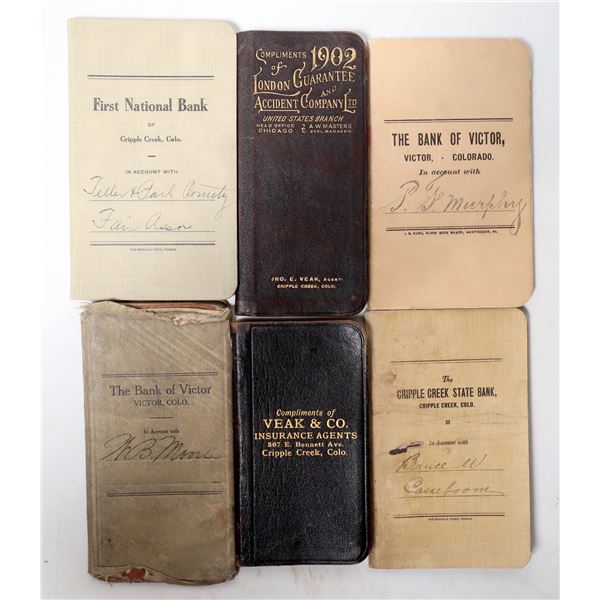 First National Bank
OF
Cripple Creek, Colo.
IN ACCOUNT WITH
Teller & Park County
Fair Assn
THE FRANKLIN PRESS, PUEBLO
COMPLIMENTS 1902
of
LONDON GUARANTEE
AND
ACCIDENT COMPANY LTD
UNITED STATES BRANCH
HEAD OFFICE CHICAGO
A.W. MASTERS GENL. MANAGER
JNO. E. VEAK, AGENT
CRIPPLE CREEK, COLO.
THE BANK OF VICTOR,
VICTOR, - COLORADO.
In account with
P. F. Murphy
BLANK BOOK MAKER, HUNTINGDON, PA.
The Bank of Victor
VICTOR, COLO.
In Account with
W.B. Moore
Compliments of
VEAK & CO.
INSURANCE AGENTS
367 E. Bennett Ave.
Cripple Creek, Colo.
The
CRIPPLE CREEK STATE BANK,
CRIPPLE CREEK, COLO.
In Account with
Bruce W
Casseboom
THE FRANKLIN PRESS, PUEBLO